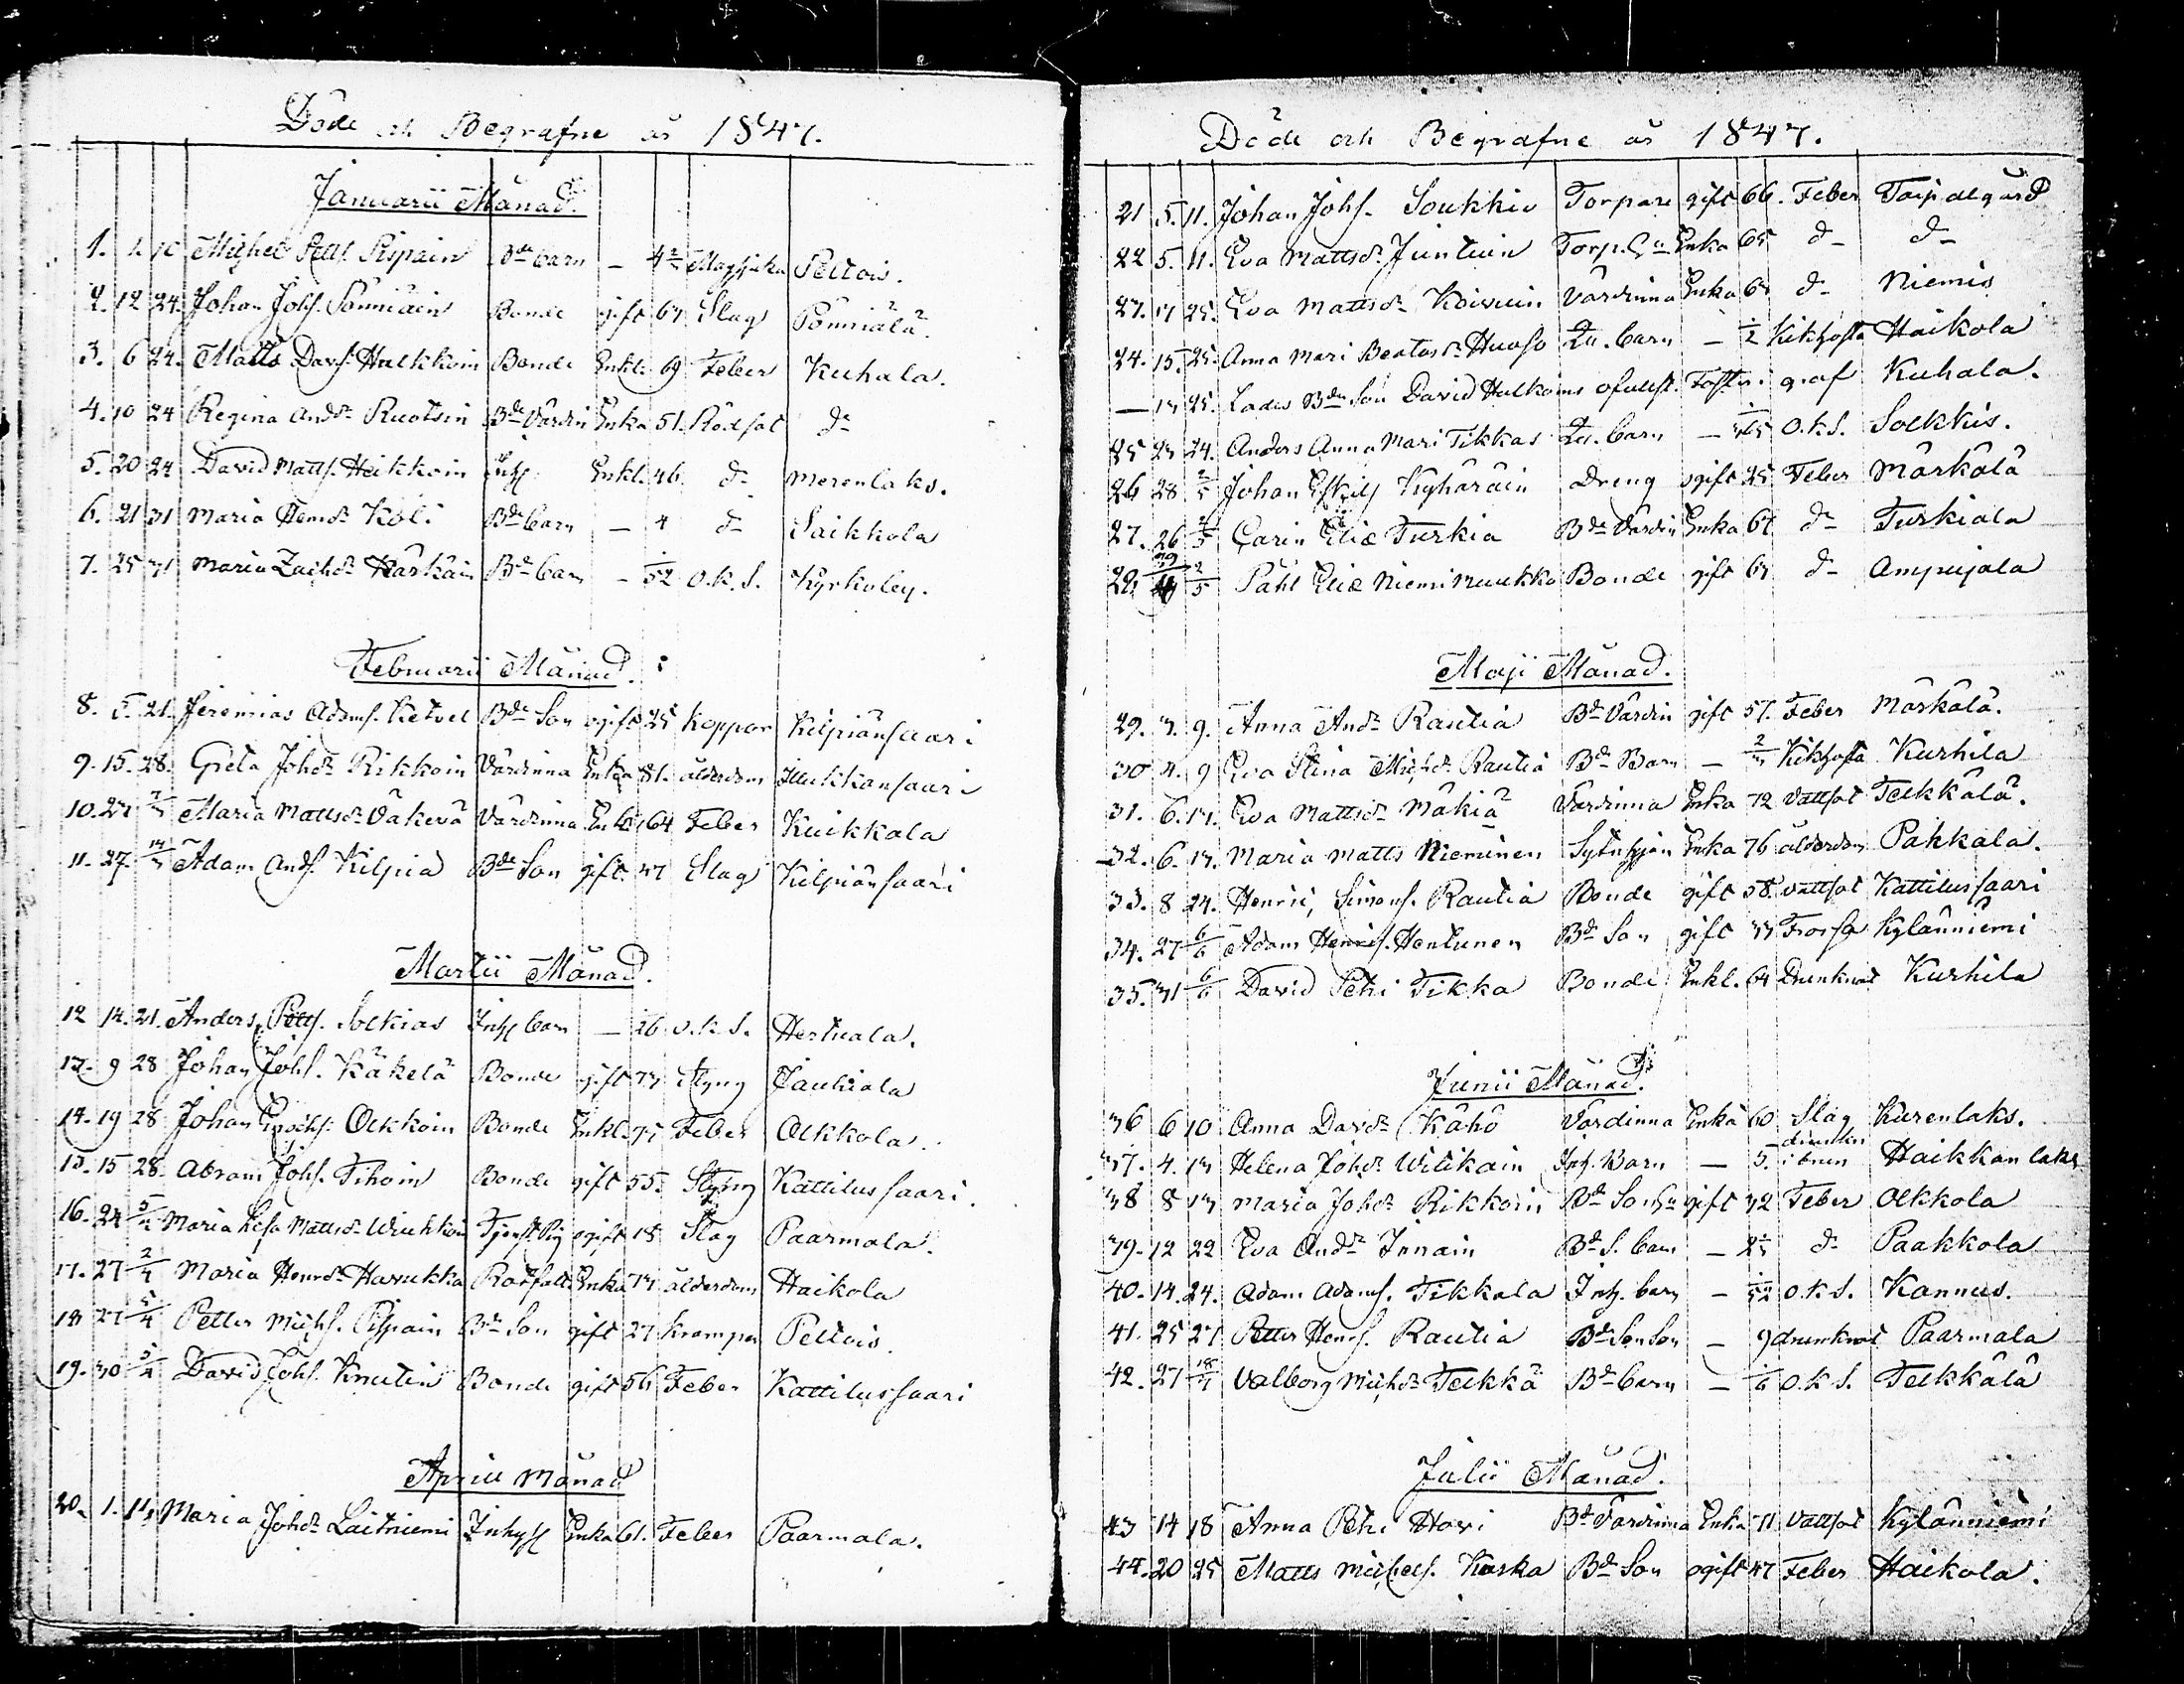 Döde och Begrafne år 1847.
Januarii Månad.
1. 1. 10 Michel Pettf. Pispain Bde barn – 4 Magsjuka Peltois.
2. 12 24. Johan Johf. Pönniäin Bonde gift 67 Slag Pönniälä.
3. 6 24. Matts Davf. Hulkkoin Bonde Enkl. 69 Feber Kuhala.
4. 10 24 Regina Andr Ruotsin Bde Värdin Enka 51. Rödsot do
5. 20 24 David Mattf. Heikkoin Inhf Enkl. 46. do Merenlaks.
6. 21 31 Maria Hemdr Koli Bde Barn – 4 do Saikkola
7. 25 31 Maria Zachdr Kärkäin Bde barn – 1/52 O.k.S. Kyrkoby.
Februarii Månad.
8. 5. 21. Jeremias Adamf. Ketvel Bde Son ogift 25 Koppor Kilpiänsaari
9. 15. 28. Greta Johdr Rikkoin Värdinna Enka 81. ålderdom
10. 27 7/3 Maria Mattsdr Väkevä Värdinna Enka 64 Feber Kuikkala
11. 27. 14/3 Adam Andf. Kilpiä Bde Son gift. 37 Slag Kilpiänsaari
Martii Månad.
12 14. 21. Anders Pettf. Solkias Inhf barn – 26 o.k.S. Hertuala.
13. 9 28 Johan Johf. Käkelä Bonde gift 73 Styng Jaukiala
14. 19 28 Johan Enochf. Olkkoin Bonde Enkl. 75 Feber Olkkola.
15. 15 28. Abram Johf. Tihoin Bonde gift 55. Styng Kattilussaari.
16. 24 5/4 Maria Lisa Mattsdr Tjenst Pig ogift 18 Slag Paarmala.
17. 27 2/4 Maria Henrdr Havukka Enka 73 ålderdom Haikola
18 27 5/4 Petter Michf. Pispain Bde Son gift 27 Krampor Peltois.
19. 30 5/4 David Johf. Knutin Bonde gift 56 Feber Kattilussaari
Aprill Månad
20. 1. 11. Maria Johdr Laitniemi Inhyf Enka 61. Feber Paarmala.
Döde och Begrafne år 1847.
21 5. 11. Johan Johf. Soukkio Torpare gift 66. Feber Torpalgård
22 5. 11. Eva Mattsdr Juntuin Torp. Enka 65 do do
23. 17 25. Eva Mattsdr Koivuin Värdinna Enka 67 do Niemis
24. 15. 25. Anna Mari Beatasdr Huoso Qu. barn – 1/2 Kikhosta Haikola
— 13 25. Lades Bde Son David Hulkoins ofullst. Foster i graf Kuhala.
25 23 24. Anders Anna Mari Tikkas Qu. barn – 1/365 O.k.S. Solkkis.
26 28 2/5 Johan Eskilf Kyhäräin Dreng ogift 25 Feber Märkälä
27. 26 2/5 Carin Eliæ Turkia Bde Värdin Enka 67 do Turkiala
28. 29 2/5 Påhl Eliæ Niemimuukko Bonde gift 63 do Ampujala
Maji Månad.
29. 3. 9. Anna Andr Rautia Bde Värdin gift 57. Feber Märkälä.
30 4. 9 Eva Stina Michdr Rautia Bde Barn – 2/3 Kikhosta Kurhila
31. 6. 13. Eva Mattsdr Mäkiä Värdinna Enka 72 Vattsot Telkkälä.
32. 6. 13. Maria Matts Nieminen Sytnhjon Enka 76 ålderdom Pakkala.
33. 8 24. Henric, Simonf. Rautia Bonde gift 58. vattsot Kattilussaari
34. 27 6/6 Adam Henrif. Hentunen Bde Son gift 33 Frossa Kylänniemi
35. 31 6/6 David Petri Tikka Bonde Enkl. 64 Drunknat Kurhila
Junii Månad.
36 6 10 Anna Davdr Kähö Värdinna Enka 60 Slag Kurenlaks.
37. 4. 13 Helena Johdr Wilikain Inh. Barn – 5. i brun Haikkanlaks
38 8 13 Maria Johdr Rikkoin Bde gift 32 Feber Olkkola
39. 12 22 Eva Andr Innain Bde S. barn – 2 do Paakkola
40. 14. 24. Adam Adamf. Tikkala Inh. barn – 1/52 O.k.S. Kannus.
41. 25 27 Petter Henrf. Rautia Bde SonSon – 9 drunknat Paarmala
42. 27 18/7 Valborg Michdr Telkkä Bde barn – 1/6 O.k.S. Telkkälä
Julii Månad.
43 14 18 Anna Petri Hovi Bde Värdinna Enka 71 Vattsot Kylänniemi
44. 20 25 Matts Michelf. Karska Bde Son ogift 47 Feber Haikola.